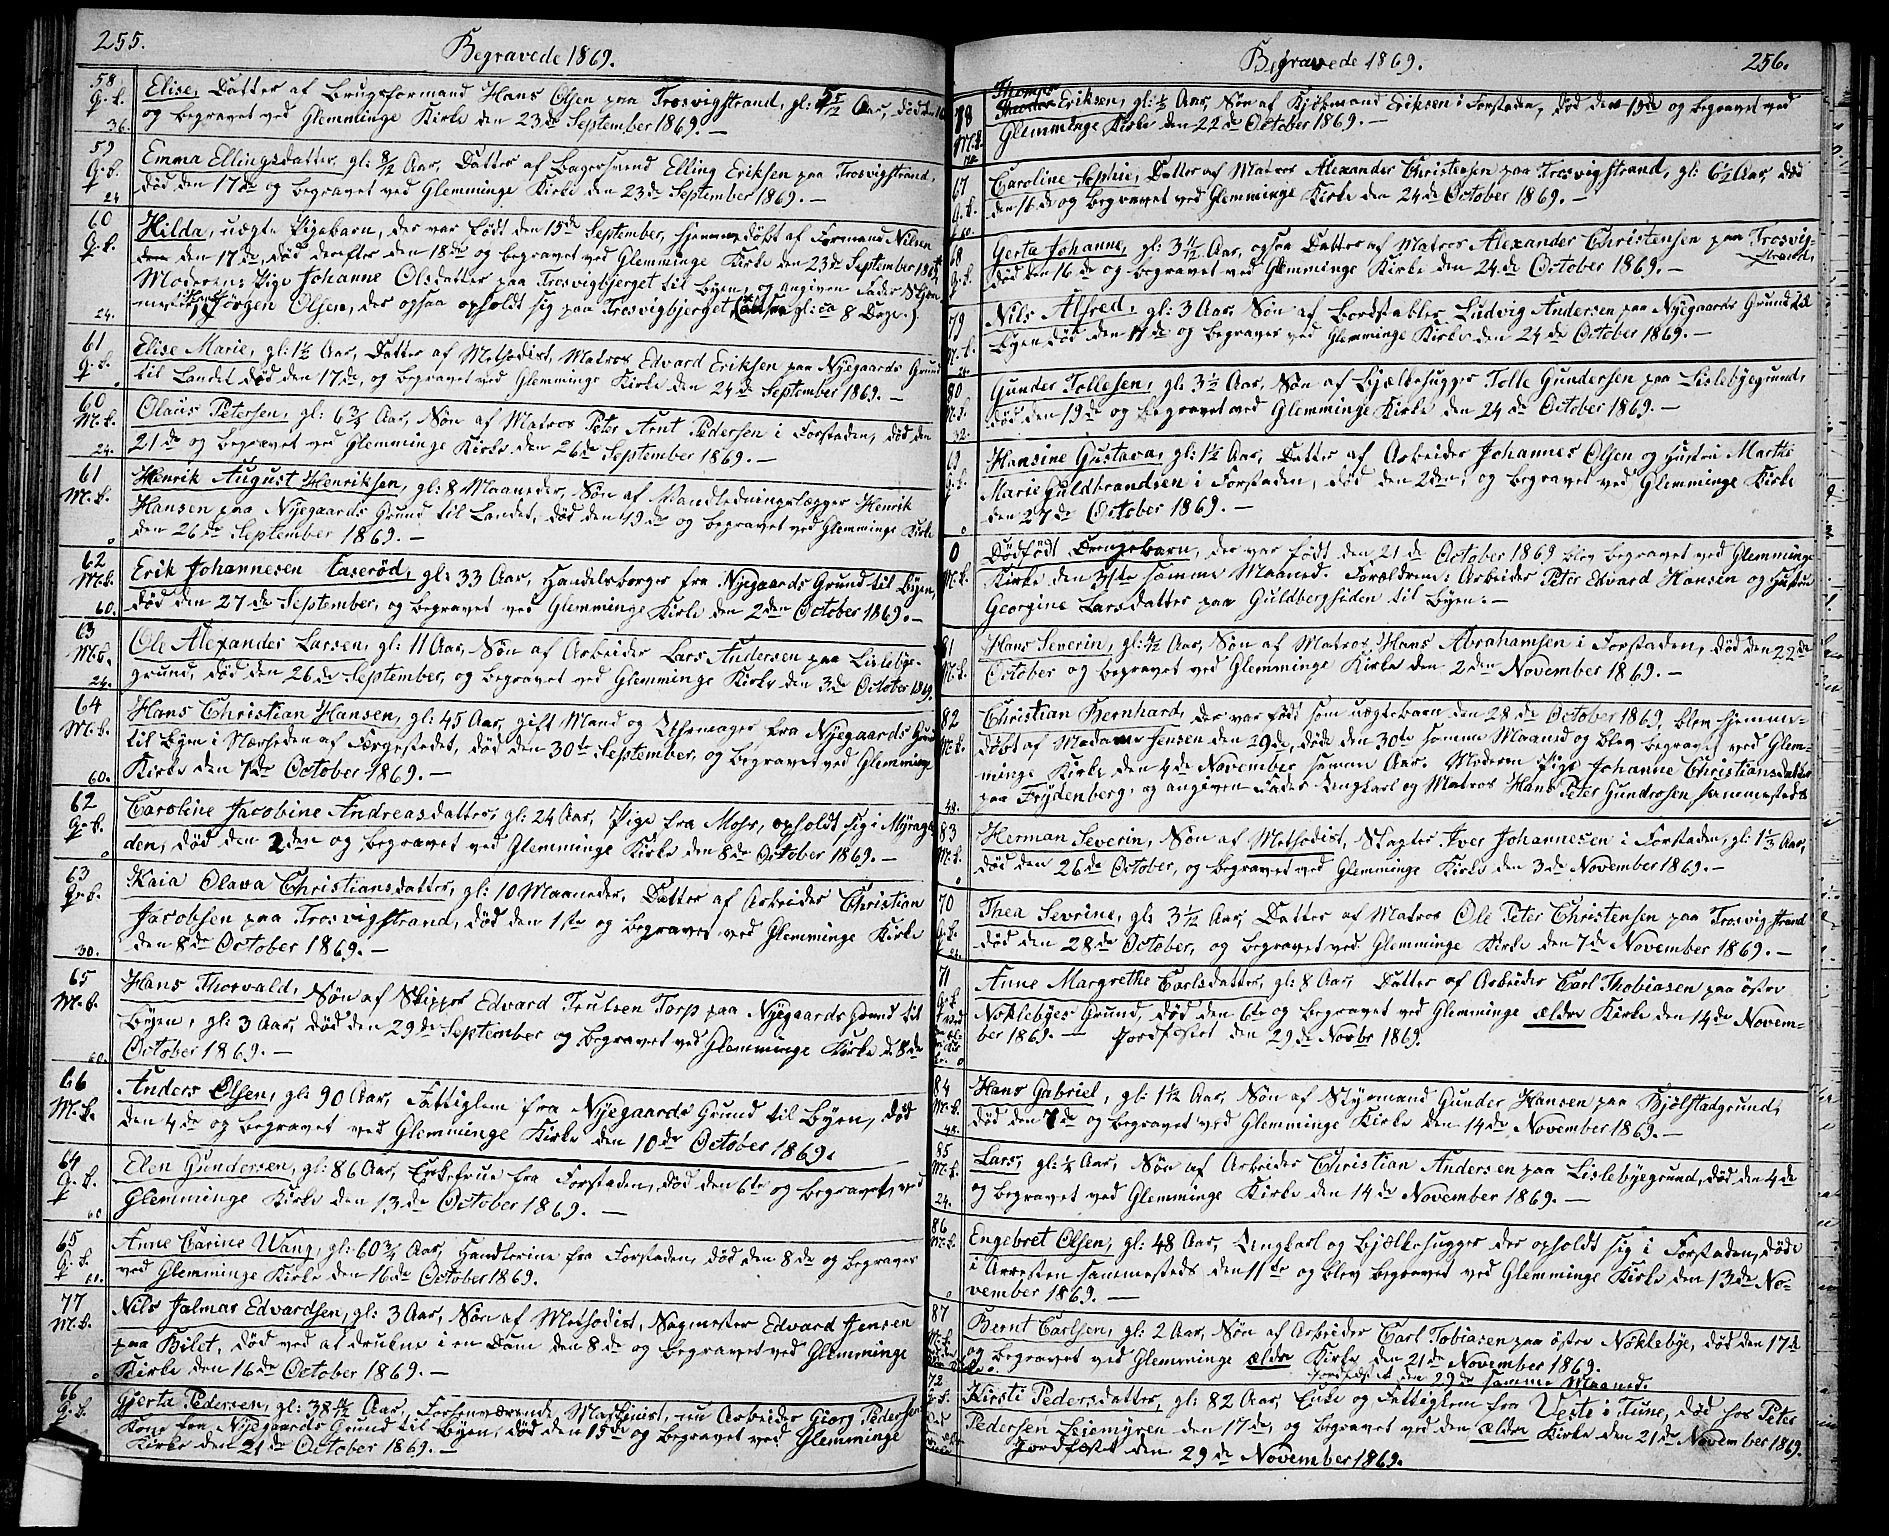 255.
Begravede 1869.
58
Q. k.
36.
Elise, Datter af Brugsformand Hans Olsen paa Trosvigstrand, gl: 5/12 Aar, død den
og begravet ved Glemminge Kirke den 23de September 1869. —
59
Q. k.
24
Emma Ellingsdatter, gl: 8/12 Aar, Datter af Bagersvend Elling Eriksen paa Trosvigstrand,
død den 17de og begravet ved Glemminge Kirke den 23de September 1869. —
60
Q. k.
24.
Hilda, uægte Pigebarn, der var født den 15de September, hjemmedøbt af Formand Nilsen
den 17de, død derefter den 18de og begravet ved Glemminge Kirke den 23de September 1869.
Moderen: Pige Johanne Olsdatter paa Trosvigbjerget til Byen, og angiven Fader
Jørgen Olsen, der ogsaa opholdt sig paa Trosvigbjerget, (altsaa gl: ca 8 Dage.)
61
Q. k.
0
Elise Marie, gl: 1½ Aar, Datter af Methodist, Matros Edvard Eriksen paa Nyegaards Grund
til Landet død den 17de, og begravet ved Glemminge Kirke den 24de September 1869. —
60
M. k.
24.
Olaüs Petersen, gl: 6¾ Aar, Søn af Matros Peter Arnt Pedersen i Forstaden, død den
21de og begravet ved Glemminge Kirke den 26de September 1869. —
61
M. k.
0
Henrik August Henriksen, gl: 8 Maaneder, Søn af Vandledningslægger Henrik
Hansen paa Nyegaards Grund til Landet, død den 19de og begravet ved Glemminge Kirke
den 26de September 1869. —
62
M. k.
60.
Erik Johannesen Taserød, gl: 33 Aar, Handelsborger fra Nyegaards Grund til Byen,
død den 27de September, og begravet ved Glemminge Kirke den 2den October 1869. —
63
M. k.
24.
Ole Alexander Larsen, gl: 11 Aar, Søn af Arbeider Lars Andersen paa Lislebye-
grund, død den 26de September, og begravet ved Glemminge Kirke den 3de October 1869.
64
M. k.
60.
Hans Christian Hansen, gl: 45 Aar, gift Mand og Uhrmager fra Nyegaards Grund
til Byen i Nærheden af Færgestedet, død den 30te September, og begravet ved Glemminge
Kirke den 7de October 1869. —
62
Q. k.
0
Caroline Jacobine Andreasdatter, gl: 24 Aar, Pige fra Moss, opholdt sig i Myrága-
den, død den 2den og begravet ved Glemminge Kirke den 8de October 1869. —
63
Q. k.
30.
Kaia Olava Christiansdatter, gl: 10 Maaneder, Datter af Arbeider Christian
Jacobsen paa Trosvigstrand, død den 1ste og begravet ved Glemminge Kirke
den 8de October 1869. —
65
M. k.
60.
Hans Thorvald, Søn af Skipper Edvard Trulsen Torp paa Nyegaards Grund til
Byen, gl: 3 Aar, død den 29de September og begravet ved Glemminge Kirke d. 8de
October 1869. —
66
M. k.
Anders Olsen, gl: 90 Aar, Fattiglem fra Nyegaards Grund til Byen, død
den 4de og begravet ved Glemminge Kirke den 10de October 1869.
64
Q. k.
60
Elen Gundersen, gl: 86 Aar, Enkefrue fra Forstaden, død den 6te og begravet ved
Glemminge Kirke den 13de October 1869. —
65
Q. k.
60.
Anne Carine Wang, gl: 60¾ Aar, Handlerinne fra Forstaden, død den 8de og begravet
ved Glemminge Kirke den 16de October 1869.
77
M. k.
0
Nils Jalmar Edvardsen, gl: 3 Aar, Søn af Methodist, Sagmester Edvard Jensen
paa Kilet, død ved at drukne i en Dam den 8de og begravet ved Glemminge
Kirke den 16de October 1869. —
66
Q. k.
Gjerta Pedersen, gl: 38 Aar, Forhenværende Maskinist, nu Arbeider Georg Pedersens
Kone fra Nyegaards Grund til Byen, død den 15de og begravet ved Glemminge
Kirke den 21de October 1869. —
Begravede 1869.
256.
78
M. k.
Theodor Eriksen, gl: ½ Aar, Søn af Kjøbmand Eriksen i Forstaden, død den 15de og begravet ved
Glemminge Kirke den 22de October 1869. —
67
Q. k.
60
Caroline Sophie, Datter af Matros Alexander Christensen paa Trosvigstrand, gl: 6½ Aar, død
den 16de og begravet ved Glemminge Kirke den 24de October 1869. —
68
Q. k.
Gerta Johanne, gl: 3 11/12 Aar, ogsaa Datter af Matros Alexander Christensen paa Trosvig-
strand,
død den 16de og begravet ved Glemminge Kirke den 24de October 1869. —
79
M. k.
Nils Alfred, gl: 3 Aar, Søn af Bordstabler Ludvig Andersen paa Nyegaards Grund til
Byen død den 17de og begravet ved Glemminge Kirke den 24de October 1869.
80
M. k.
32.
Gunder Tollesen, gl: 3½ Aar, Søn af Bjælkehugger Tolle Gundersen paa Lislebyegrund,
død den 19de og begravet ved Glemminge Kirke den 24de October 1869. —
69
Q. k.
0
Hansine Gustava, gl: 1½ Aar, Datter af Arbeider Johannes Olsen og Hustru Marthe
Marie Guldbrandsen i Forstaden, død den 2den, og begravet ved Glemminge Kirke
den 27de October 1869. —
0
M. k.
Dødfødt Drengebarn, der var født den 21de October 1869 blev begravet ved Glemminge
Kirke den 31ste samme Maaned. Forældrene: Arbeider Peter Edvard Hansen og Hustru
Georgine Larsdatter paa Guldbergsiden til Byen. —
81
M. k.
Hans Severin, gl: ¼ Aar, Søn af Matros Hans Abrahamsen i Forstaden, død den 22de
October og begravet ved Glemminge Kirke den 2den November 1869. —
82
M. k.
48.
Christian Bernhard, der var født som uægtebarn den 28de October 1869, blev hjemme-
døbt af Madame Jensen den 29de, døde den 30te samme Maaned og blev begravet ved Glem-
minge Kirke den 4de November samme Aar. Moderen Pige Johanne Christiansdatter
paa Frydenberg, og angiven Fader Ungkarl og Matros Hans Peter Gundrosen sammesteds
83
M. k.
0
Herman Severin, Søn af Methodist, Slagter Iver Johannesen i Forstaden, gl: 1⅓ Aar,
død den 26de October, og begravet ved Glemminge Kirke den 3de November 1869. —
70
Q. k.
24.
Thea Sevrine, gl: 3 1/12 Aar, Datter af Matros Ole Peter Christensen paa Trosvigstrand
død den 28de October, og begravet ved Glemminge Kirke den 7de November 1869. —
71
Q. k.
0
Anne Margrethe Carlsdatter, gl: 8 Aar, Datter af Arbeider Carl Thobiasen paa østre
Noklebyes Grund, død den 6te og begravet ved Glemminge ældre Kirke den 14de Novem-
ber 1869. — Jordfæstet den 29de Novbr 1869.
84
M. k.
48.
Hans Gabriel, gl: 1½ Aar, Søn af Styrmand Gunder Hansen paa Bjølstadgrund,
død den 7de og begravet ved Glemminge Kirke den 14de November 1869. —
85
M. k.
24.
Lars, gl: ¼ Aar, Søn af Arbeider Christian Andersen paa Lislebyegrund, død den 4de
og begravet ved Glemminge Kirke den 14de November 1869. —
86
M. k.
0
Engebret Olsen, gl: 48 Aar, Ungkarl og Bjælkehugger der opholdt sig i Forstaden, døde
i Arresten sammesteds den 11te og blev begravet ved Glemminge Kirke den 13de No-
vember 1869. —
87
M. k.
Bernt Carlsen, gl: 2 Aar, Søn af Arbeider Carl Tobiasen paa østre Nøkleby, død den 17de
og begravet ved Glemminge ældre Kirke den 21de November 1869.
Jordfæstet den 29de samme Maaned.
72
Q. k.
Kirsti Pedersdatter, gl: 82 Aar, Enke og Fattiglem fra Veste i Tune, død hos Peter
Pedersen Leiemyren den 17de, og begravet ved den ældre Kirke den 21de November 1869.
Jordfæstet den 29de November 1869.